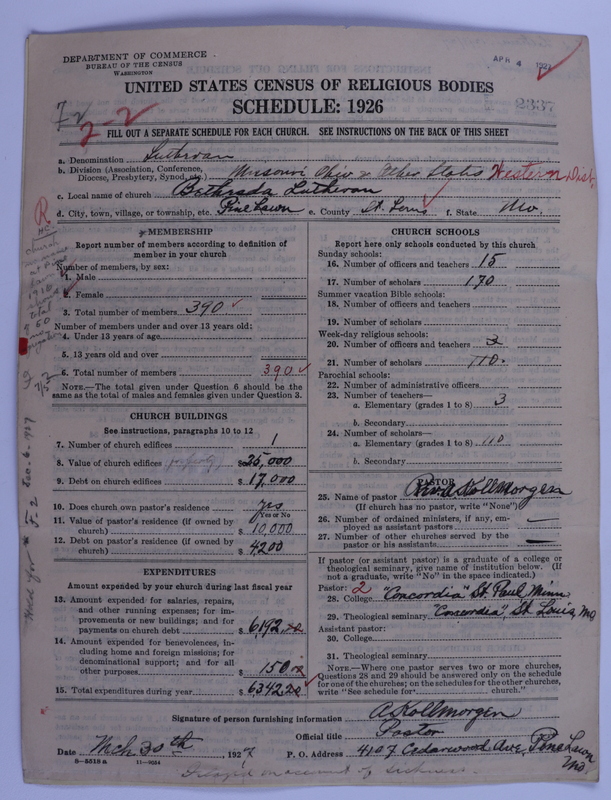 DEPARTMENT OF COMMERCE
BUREAU OF THE CENSUS
WASHINGTON
APR 4 1927
UNITED STATES CENSUS OF RELIGIOUS BODIES
SCHEDULE: 1926
2337
2-2
FILL OUT A SEPARATE SCHEDULE FOR EACH CHURCH. SEE INSTRUCTIONS ON THE BACK OF THIS SHEET
a. Denomination Lutheran
b. Division (Association, Conference, Diocese, Presbytery, Synod, etc.) Missouri Ohio & Other States Western Dist.
c. Local name of church Bethesda Lutheran
d. City, town, village, or township, etc. Pine Lawn e. County St. Louis f. State Mo.
MEMBERSHIP
Report number of members according to definition of
member in your church
Number of members, by sex:
1. Male
2. Female
3. Total number of members 390
Number of members under and over 13 years old:
4. Under 13 years of age
5. 13 years old and over
6. Total number of members 390
NOTE.—The total given under Question 6 should be the
same as the total of males and females given under Question 3.
CHURCH BUILDINGS
See instructions, paragraphs 10 to 12
7. Number of church edifices 1
8. Value of church edifices (property) $25,000
9. Debt on church edifices $17,000
10. Does church own pastor's residence Yes
Yes or No
11. Value of pastor's residence (if owned by
church) $10,000
12. Debt on pastor's residence (if owned by
church) $4200
EXPENDITURES
Amount expended by your church during last fiscal year
13. Amount expended for salaries, repairs,
and other running expenses; for im-
provements or new buildings; and for
payments on church debt $6192
14. Amount expended for benevolences, in-
cluding home and foreign missions; for
denominational support; and for all
other purposes 150
15. Total expenditures during year $6342
CHURCH SCHOOLS
Report here only schools conducted by this church
Sunday schools:
16. Number of officers and teachers 15
17. Number of scholars 170
Summer vacation Bible schools:
18. Number of officers and teachers
19. Number of scholars
Week-day religious schools:
20. Number of officers and teachers 3
21. Number of scholars 110
Parochial schools:
22. Number of administrative officers
23. Number of teachers—
a. Elementary (grades 1 to 8) 3
b. Secondary
24. Number of scholars—
a. Elementary (grades 1 to 8) 110
b. Secondary
PASTOR
25. Name of pastor Kollmorgen
(If church has no pastor, write "None")
26. Number of ordained ministers, if any, em-
ployed as assistant pastors —
27. Number of other churches served by the
pastor or his assistants —
If pastor (or assistant pastor) is a graduate of a college or
theological seminary, give name of institution below. (If
not a graduate, write "No" in the space indicated.)
Pastor: 2
28. College "Concordia" St Paul, Minn
29. Theological seminary "Concordia" St Louis, Mo
Assistant pastor:
30. College
31. Theological seminary
NOTE.—Where one pastor serves two or more churches,
Questions 28 and 29 should be answered only on the schedule
for one of the churches; on the schedules for the other churches,
write "See schedule for church."
Signature of person furnishing information A Kollmorgen
Official title Pastor
Date Mch 30th, 1927 P. O. Address 4107 Cedarwood Ave, Pine Lawn
Mo.
8-5518a 11-9034
Delayed on account of sickness.